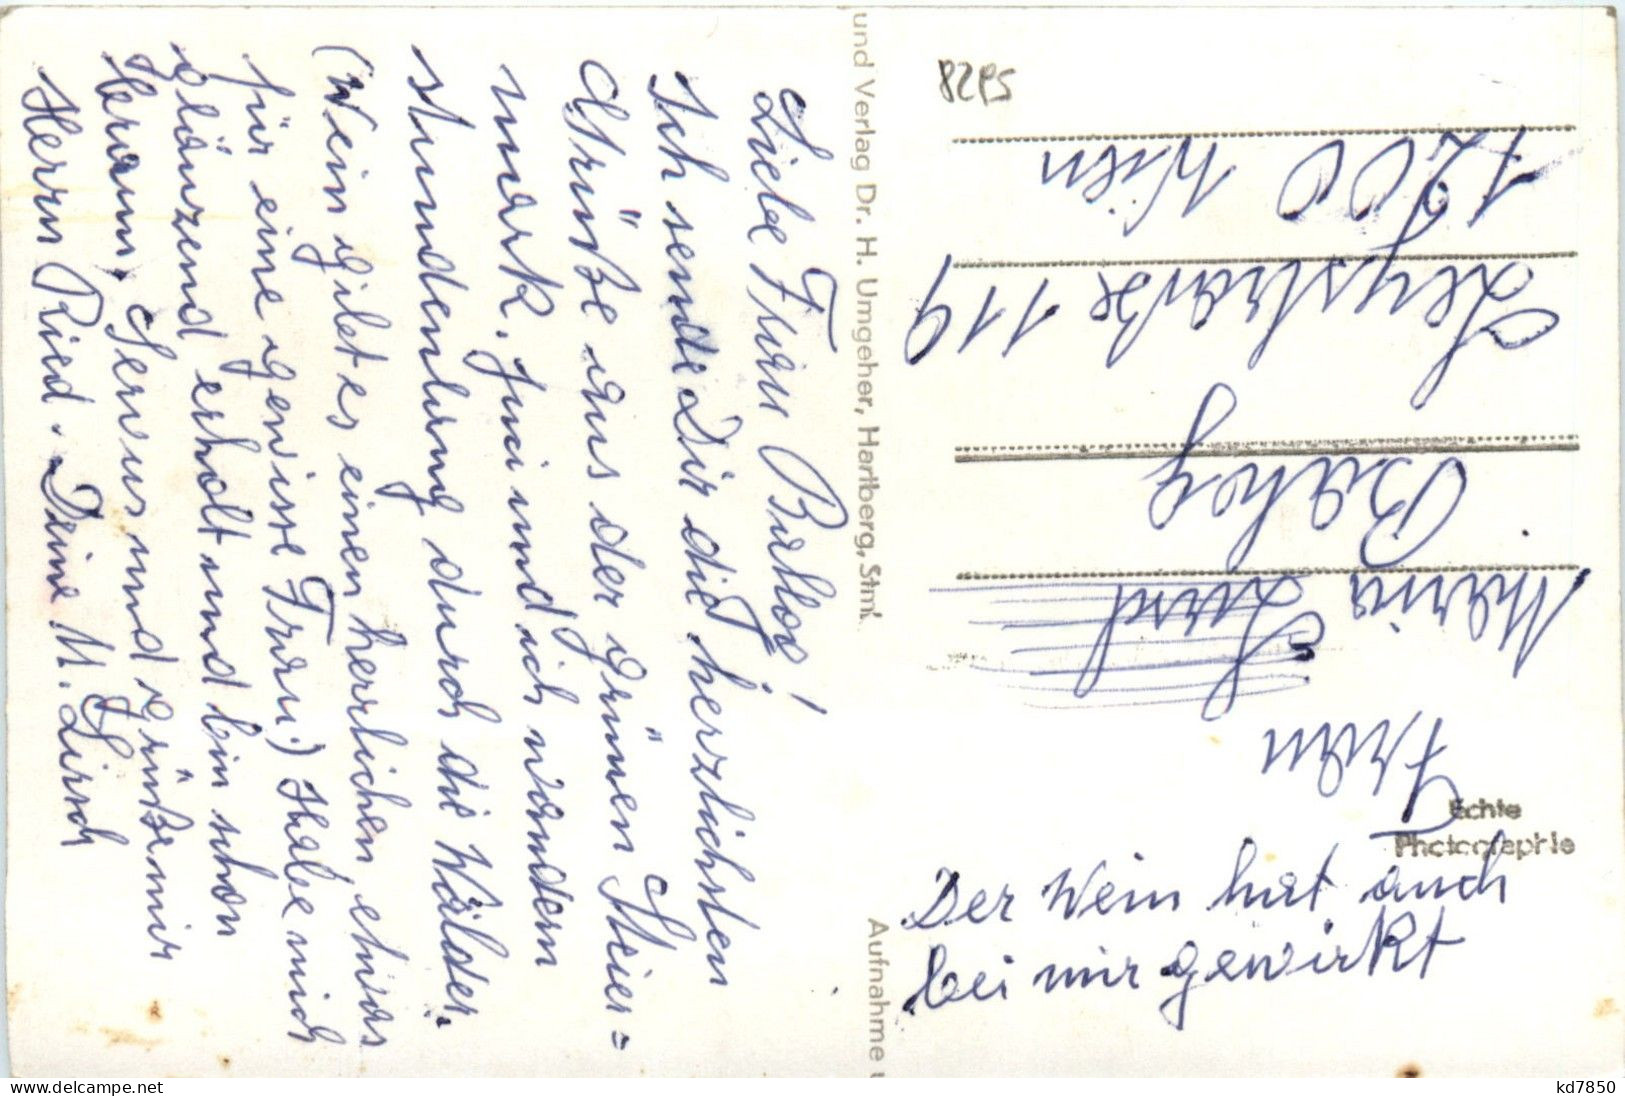 Liebe Frau Barbos!
Ich sende Dir die herzlichsten
Grüße aus der grünen Steier=
mark. Juci und ich wandern
stundenlang durch die Wälder.
(Wein gibt es einen herrlichen, etwas
für eine gewisse Frau.) Habe mich
glänzend erholt und bin schon
braun. Servus und grüße mir
Herrn Ried. Deine M. Lirsch
und Verlag Dr. H. Umgeher, Hartberg, Stmk
Aufnahme u
Echte
Photographie
Frau
Maria
1200 Wien
Leystraße 119
Der Wein hat auch
bei mir gewirkt
delcampe.net
kd7850